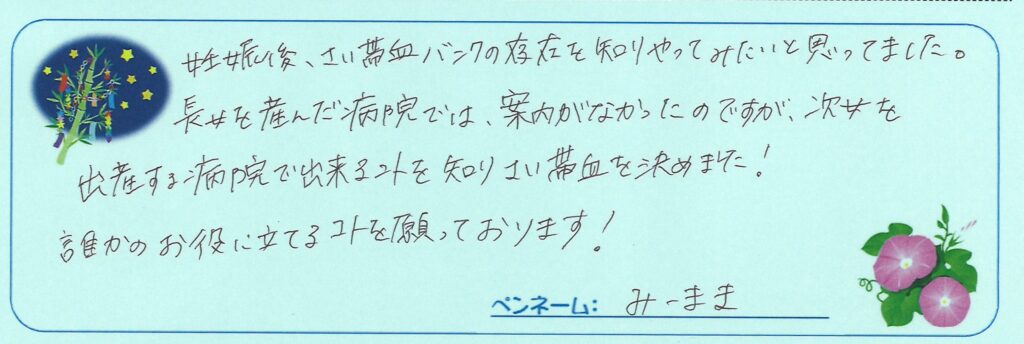 妊娠後、さい帯血バンクの存在を知りやってみたいと思ってました。
長女を産んだ病院では、案内がなかったのですが、次女を
出産する病院で出来るコトを知りさい帯血を決めました！
誰かのお役に立てるコトを願っております！
ペンネーム： みーまま